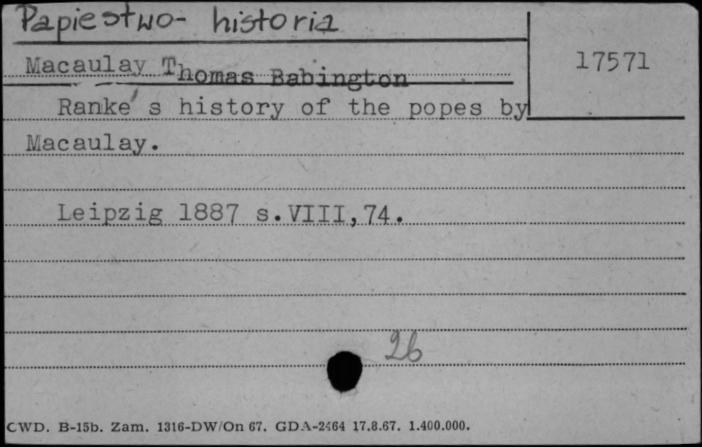 Papiestwo- historia
17571
Macaulay Thomas Babington
Ranke's history of the popes by
Macaulay.
Leipzig 1887 s.VIII,74.
26
CWD. B-15b. Zam. 1316-DW/On 67. GDA-2464 17.8.67. 1.400.000.